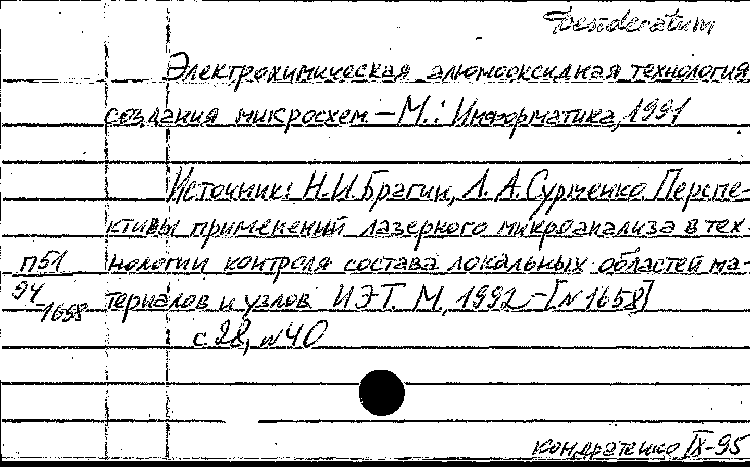 Desideratum
Электрохимическая алюмооксидная технология
создания микросхем – М.: Информатика, 1991
Источник: Н.И. Брагин, Л.А. Сурменко Перспе-
ктивы применений лазерного микроанализа в тех-
П51 нологии контроля состава локальных областей ма-
94 териалов и узлов ИЭТ. М., 1992 – [N 1658]
1658
с. 28, N 40
Кондратенко IX-95